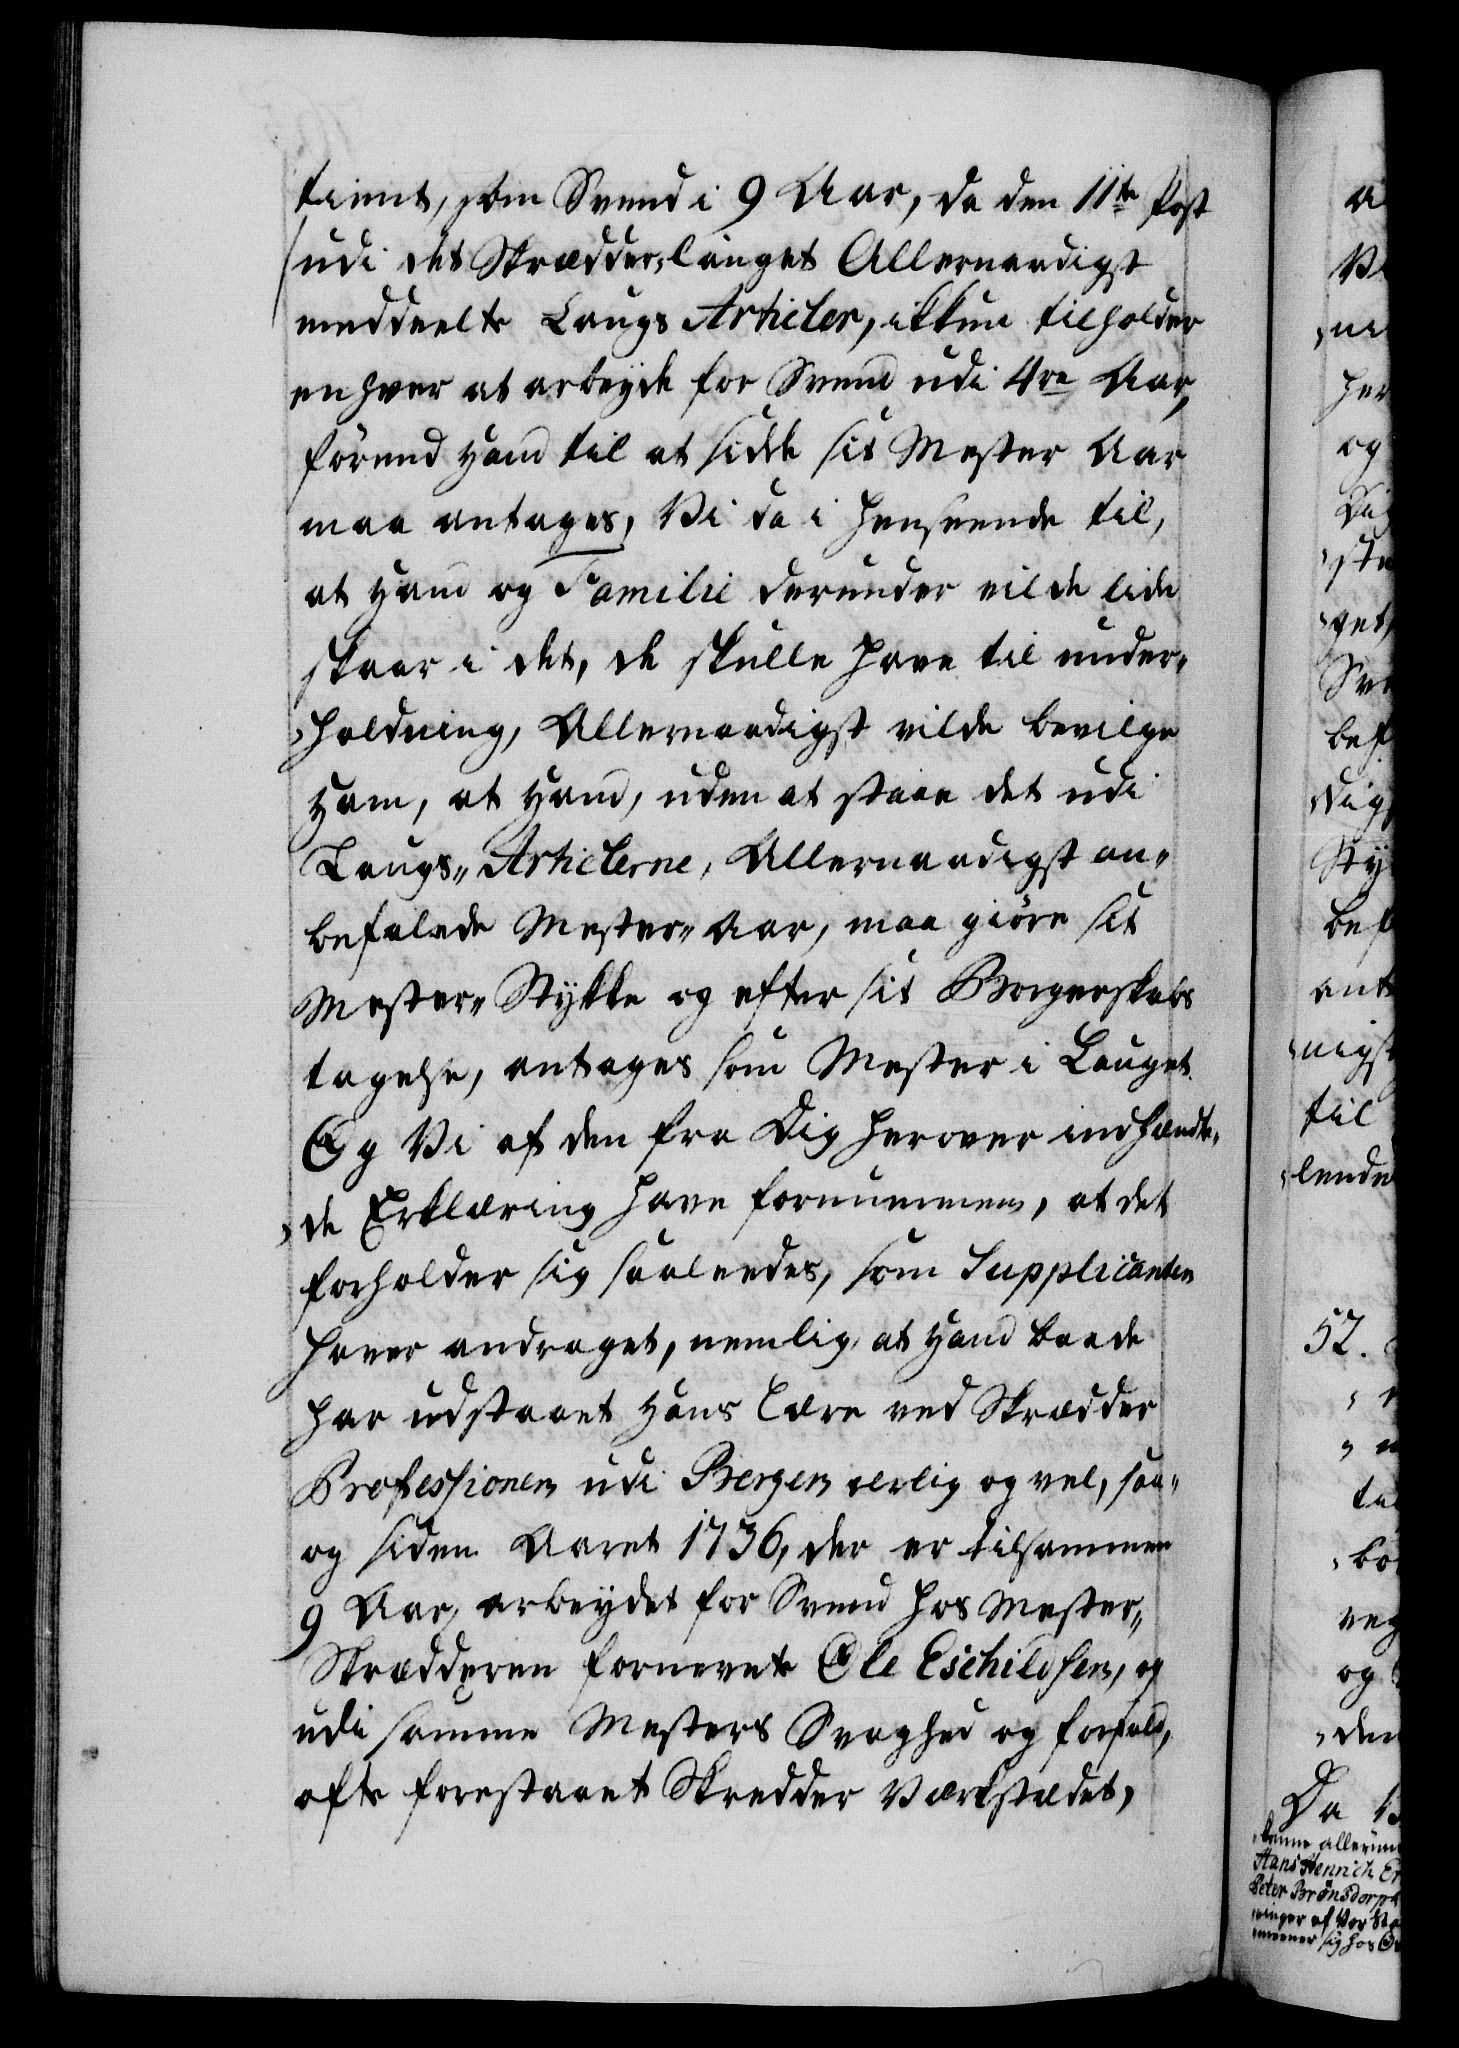 tient, som Svend i 9 Aar, da den 11te Post
udi det Skrædder-lauget Allernaadigst
meddeelte Laugs Articler, ikkun tilholder
enhver at arbeyde for Svend udi 4re Aar,
förend hand til at sidde sit Mester Aar
maa antages, Vi da i henseende til,
at hand og Familie derunder vilde lide
skaar i det, de skulle have til under-
holdning, Allernaadigst vilde bevilge
ham, at hand, uden at staae det udi
Laugs-Articlerne, Allernaadigst an-
befalede Mester-Aar, maa giöre sit
Mester-Stykke og efter sit Borgerskabs
tagelse, antages som Mester i Lauget.
Og Vi af den fra Dig herover indhændte-
de Erklæring have fornummen, at det
forholder sig saaledes, som Supplicanten
haver andraget, nemlig, at hand baade
har udstaaet hans Lære ved Skrædder
Professionen udi Bergen ærlig og vel, saa-
og siden Aaret 1736, der er tilsammen
9 Aar, arbeydet for Svend hos Mester-
Skrædderen fornevnte Ole Eschildsen, og
udi samme Mesters Svaghed og forfald,
ofte forestaaet Skredder Værkstædet,
og
til
lende
52.
og
Da
Hans Henrich
Peter Brönsdorph